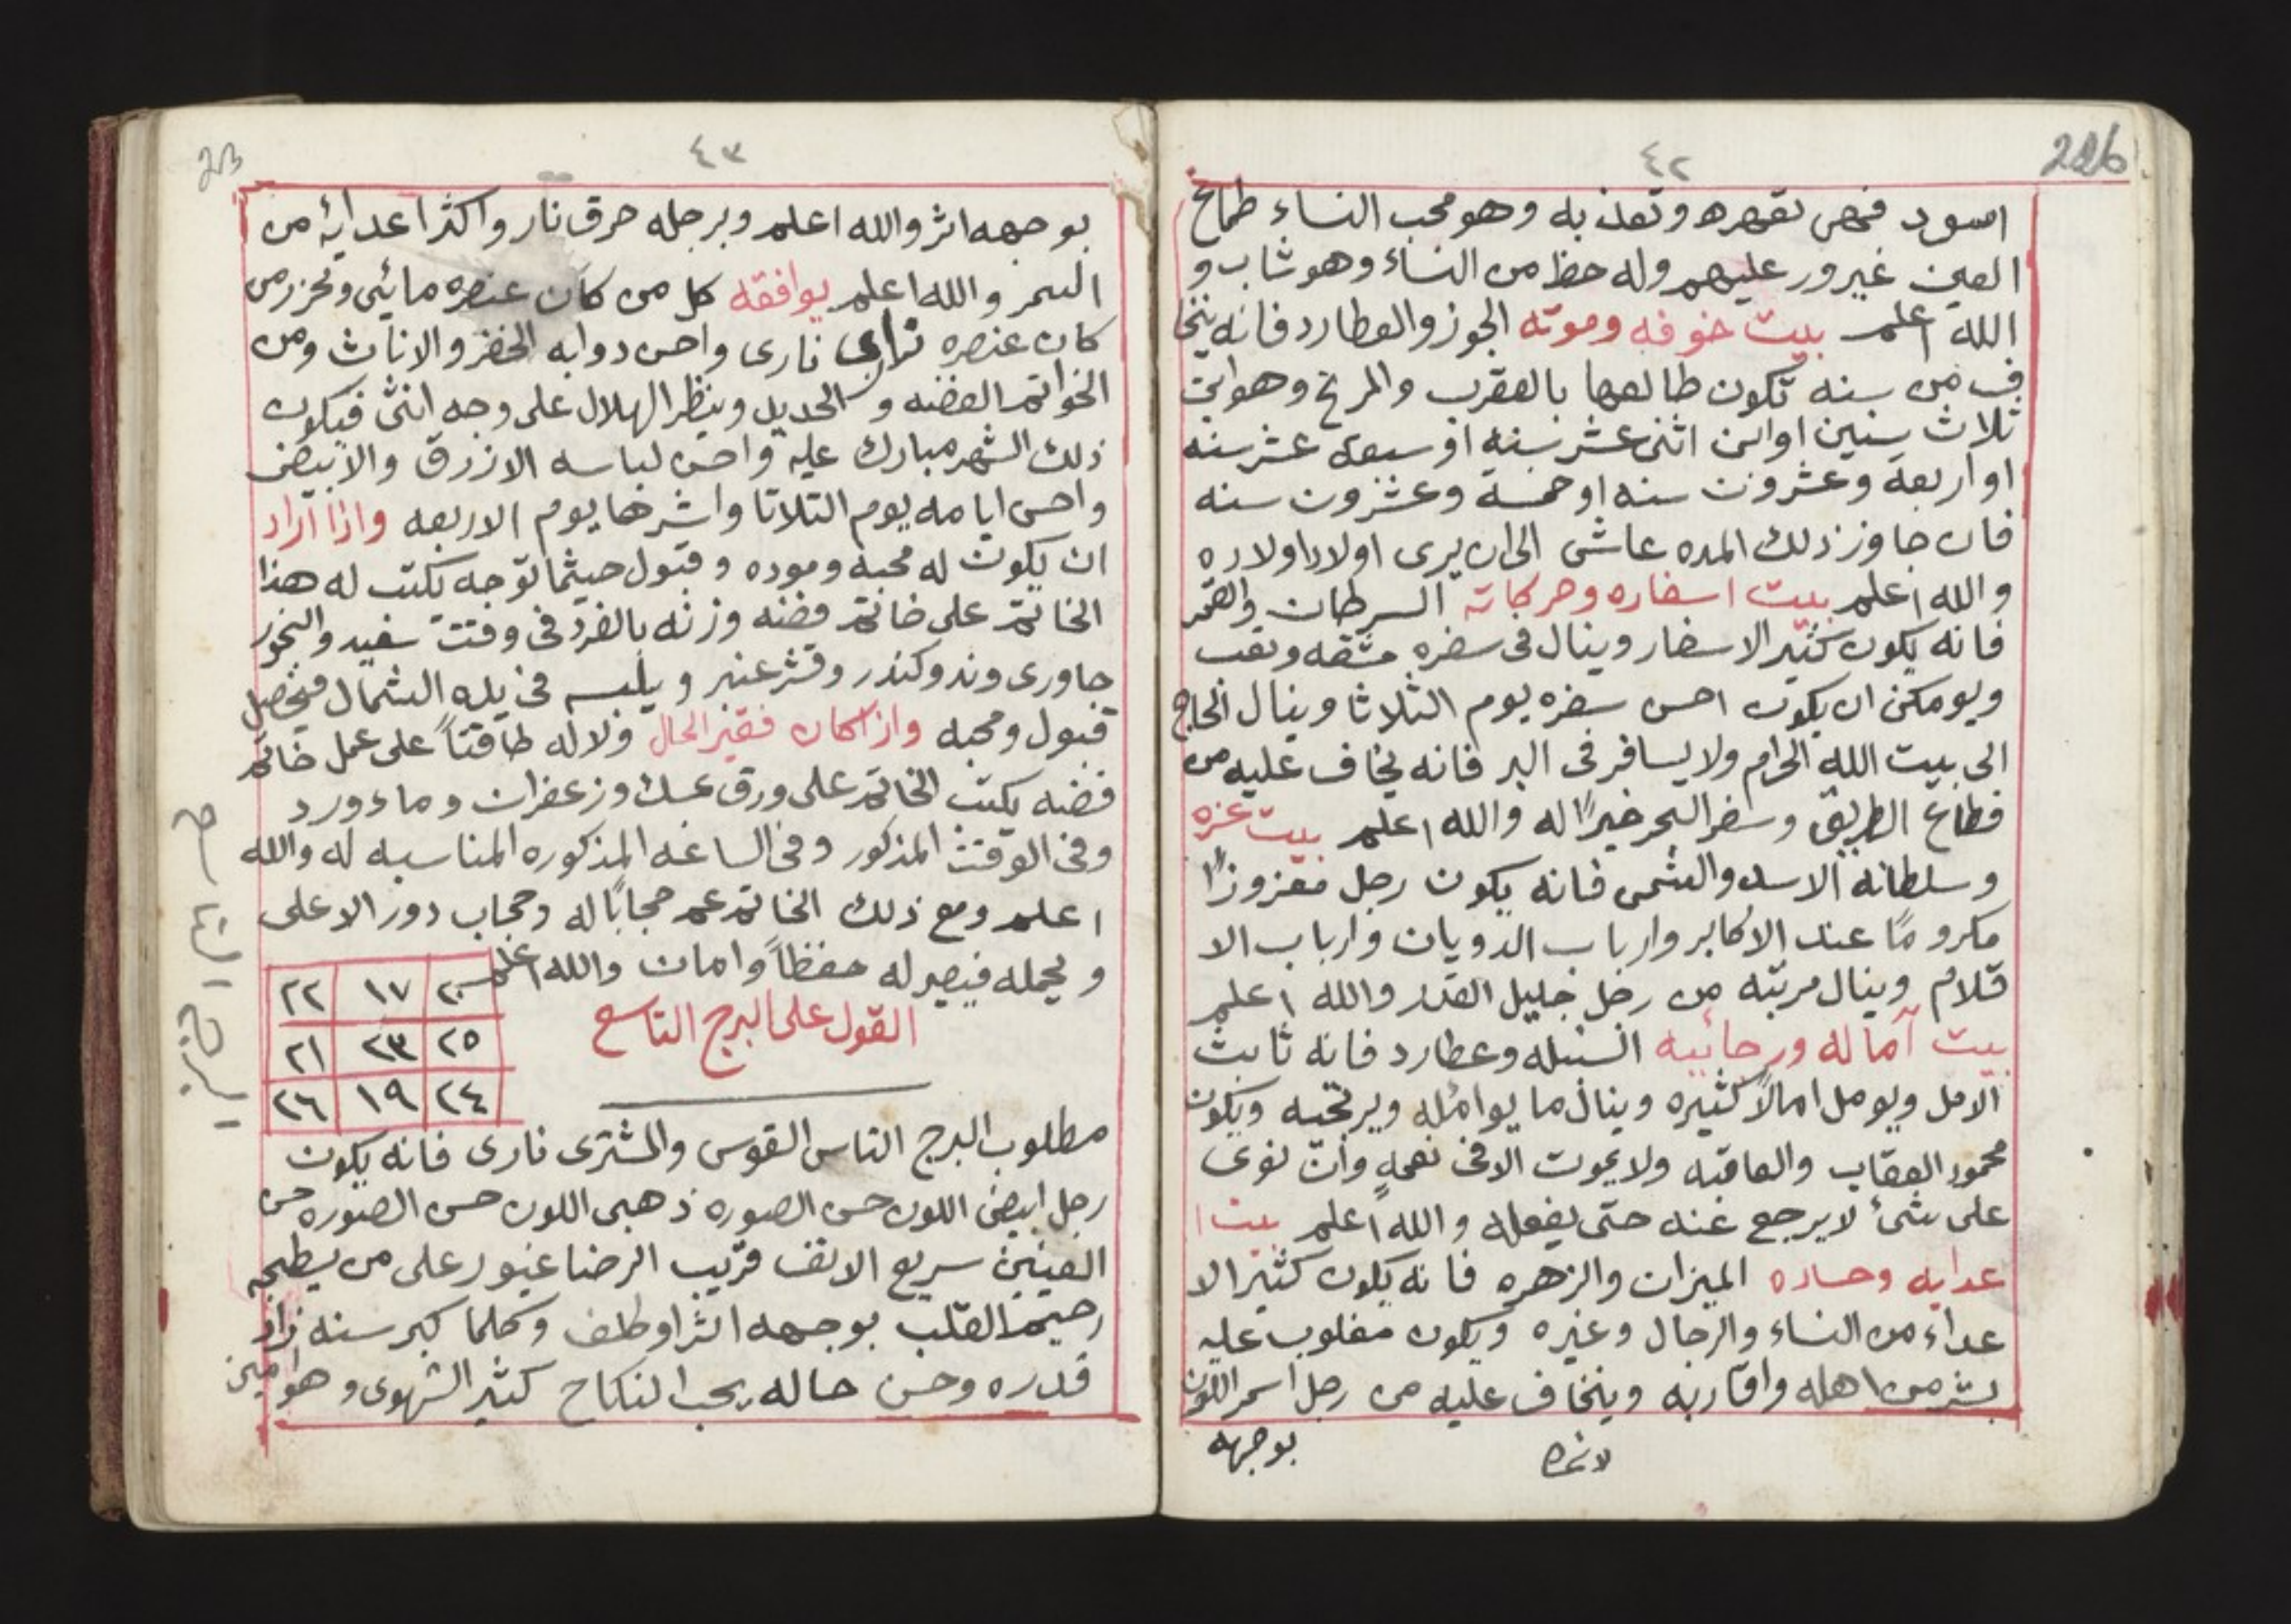 226
٤٢
اسود فهى تقهره وتعذبه وهو محب النساء طماح
العين غيرور عليهم وله حظ من النساء وهو شاب و
الله اعلم بيت خوفه وموته الجوز والعطارد فانه ينخا
ف من سنه تكون طالعها بالعقرب والمريخ وهوابن
ثلاث سنين او ابن اثنى عشر سنه او سبعة عشر سنه
او اربعة وعشرون سنه او خمسة وعشرون سنه
فان جاوز ذلك المده عاش الى ان يرى اولاد اولاده
والله اعلم بيت اسفاره وحركاته السرطان والقمر
فانه يكون كثير الاسفار وينال فى سفره مشقه وتعب
ويومكن ان يكون احسن سفره يوم الثلاثا وينال الحاج
الى بيت الله الحرام ولا يسافر فى البر فانه يخاف عليه من
قطاع الطريق وسفر البحر خيرًا له والله اعلم بيت عزه
وسلطانه الاسد والشمس فانه يكون رجل معزوزًا
مكرومًا عند الاكابر وارباب الدويان وارباب الا
قلام وينال مرتبه من رجل جليل القدر والله اعلم
بيت آماله ورجائيه السنبله وعطارد فانه ثابت
الامل ويومل امالاً كثيره وينال ما يوامله ويرتجيه ويكون
محمود العقاب والعاقبه ولا يموت الا فى نعمه وان نوى
على شئ لا يرجع عنه حتى يفعله والله اعلم بيت ا
عدايه وحساده الميزان والزهره فانه يكون كثير الا
عداء من النساء والرجال وغيره ويكون مغلوب عليه
بشر من اهله واقاربه وينخاف عليه من رجل اسمر اللون
بوجهه
٤٣
23
بوجهه اثر والله اعلم وبرجله حرق نار واكثر اعدايه من
السمر والله اعلم يوافقه كل من كان عنصره مائي وتحزر من
كان عنصره ترابى نارى واحسن دوابه الخضر والاناث ومن
الخواتم الفضه والحديد وينظر الهلال على وجه انثى فيكون
ذلك الشهر مبارك عليه واحسن لباسه الازرق والابيض
واحسن ايامه يوم التلاتا واشرها يوم الاربعه واذا اراد
ان يكون له محبه وموده وقبول حيثما توجه يكتب له هذا
الخاتم على خاتم فضه وزنه بالفرد فى وقت سعيد والبخور
جاورى وند وكندر وقشر عنبر ويلبسه فى يده الشمال فيحصل
قبول ومحبه واذا كان فقير الحال ولا له طاقتاً على عمل خاتم
فضه يكتب الخاتم على ورق بمسك وزعفران وماء ورد
وفى الوقت المذكور وفى الساعه المذكوره المناسبه له والله
اعلم ومع ذلك الخاتم عم حجابًا له وحجاب دور الاعلى
ويحمله فيصير له حفظاً وامان والله اعلم
القول على البرج التاسع
٢٠ ١٧ ٢٢
٢٥ ٢٣ ٢١
٢٤ ١٩ ٢٦
مطلوب البرج التاس القوس والمشترى نارى فانه يكون
رجل ابيض اللون حسن الصوره ذهبى اللون حسن الصوره حسن
العينين سريع الانف قريب الرضا غيور على من يطيحه
رحيم القلب بوجهه اثر او طف وكلما كبر سنه زاد
قدره وحسن حاله يحب النكاح كثير الشهوى وهو امين